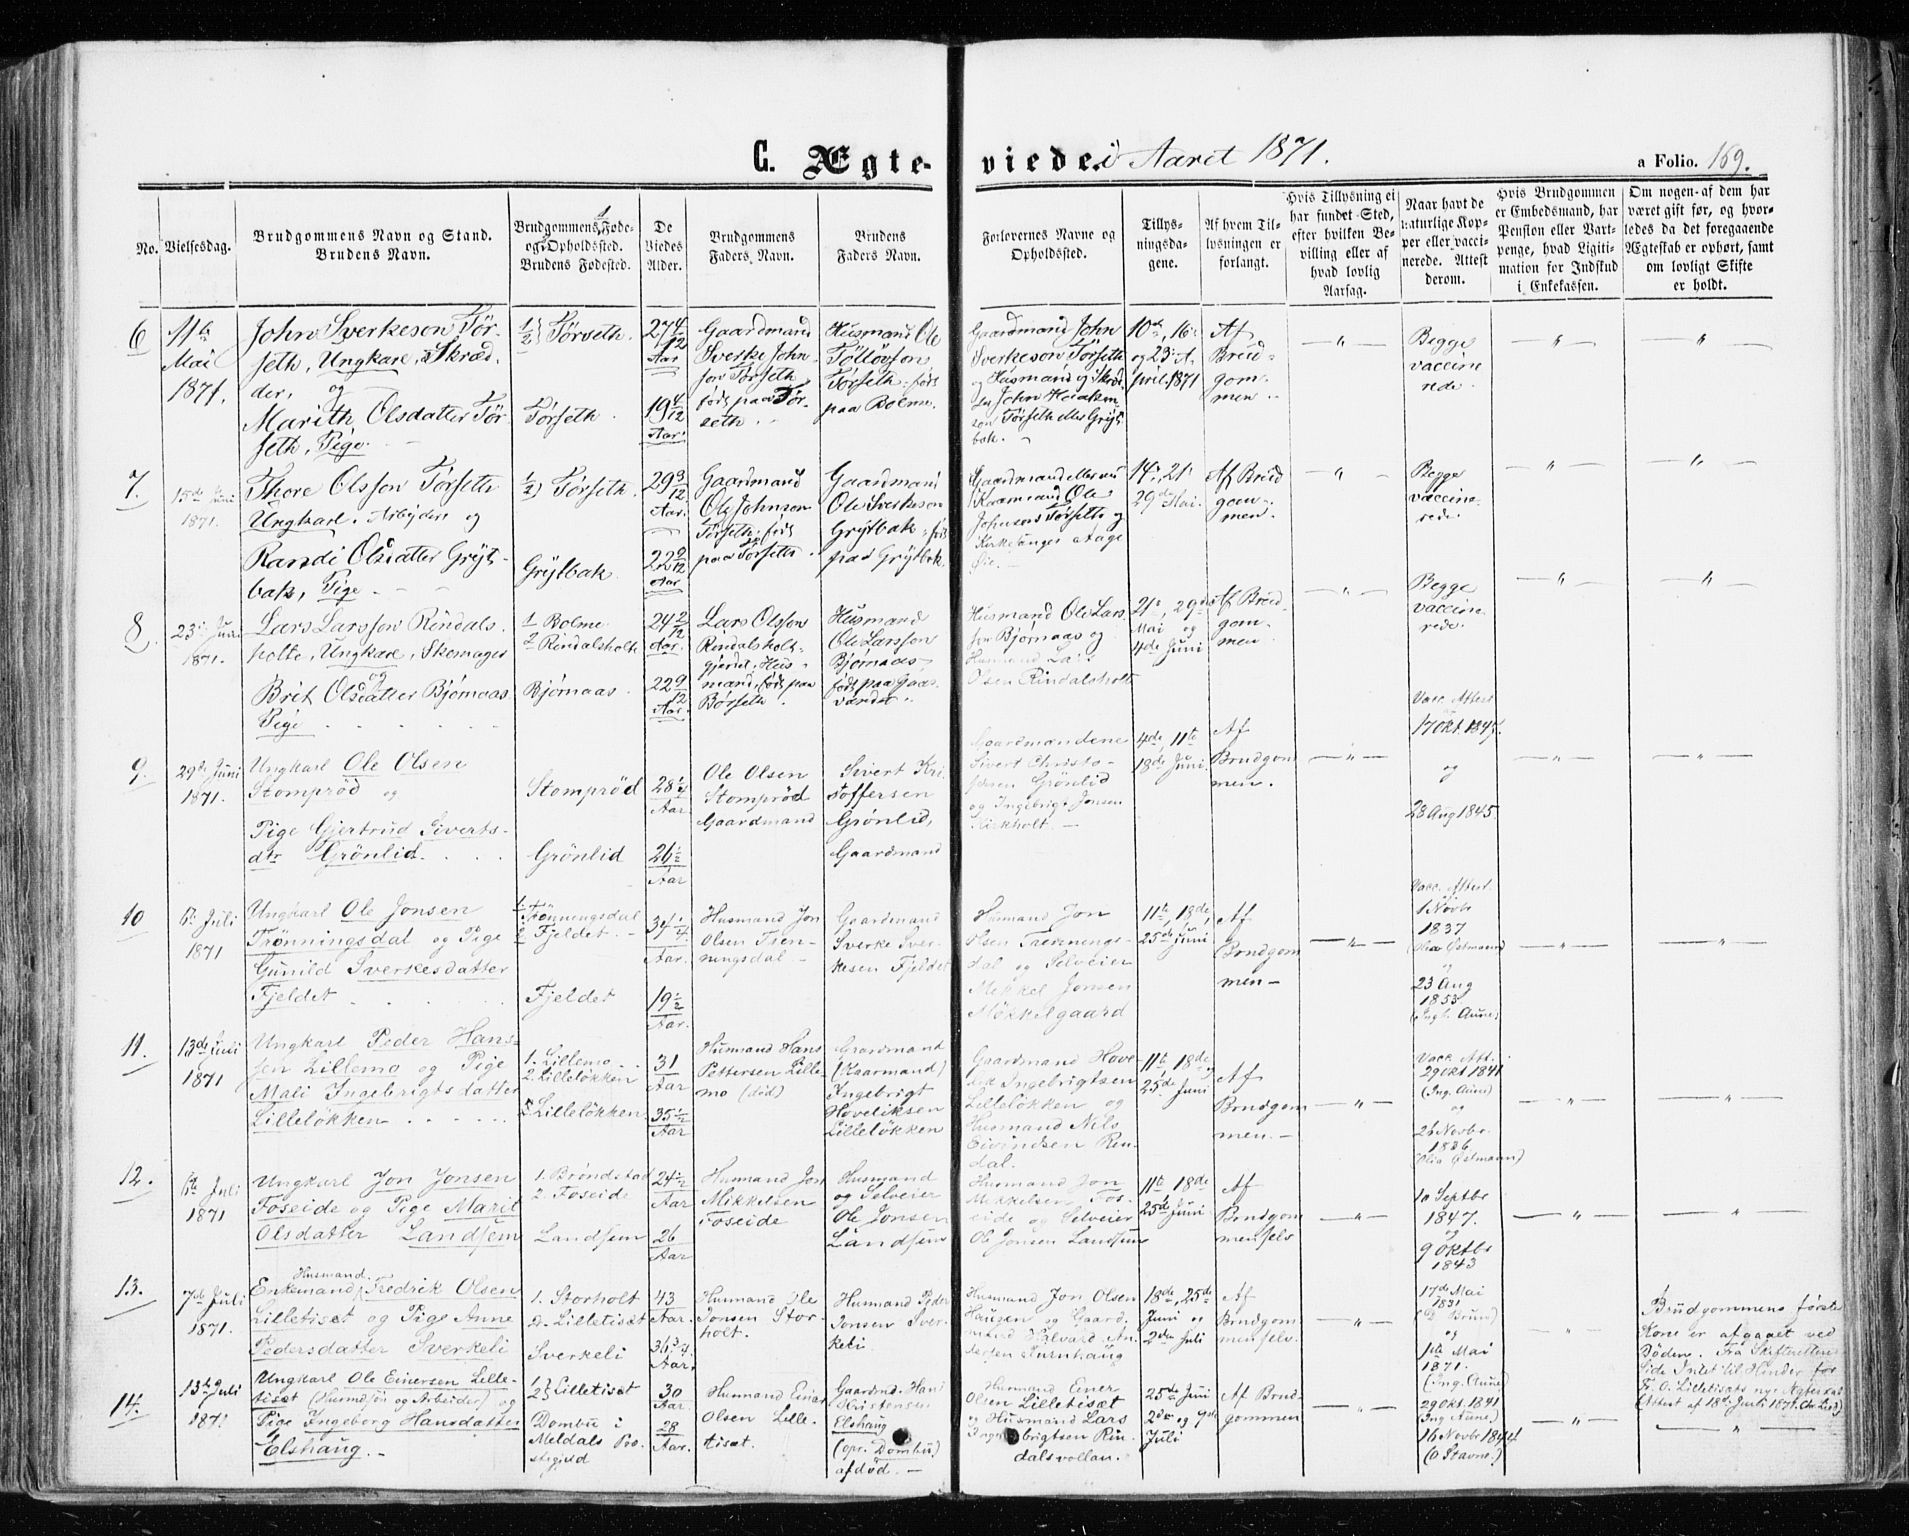 C. Ægteviede i Aaret 1871.
a Folio. 169.
No.
Vielsesdag.
Brudgommens Navn og Stand.
Brudens Navn.
Brudgommens Føde-
og Opholdssted.
Brudens Fødested.
De
Viedes
Alder.
Brudgommens
Faders Navn.
Brudens
Faders Navn.
Forlovernes Navne og
Opholdssted.
Tillys-
ningsda-
gene.
Af hvem Til-
lysningen er
forlangt.
Hvis Tillysning ei
har fundet Sted,
efter hvilken Be-
villing eller af
hvad lovlig
Aarsag.
Naar havt de
naturlige Kop-
per eller vacci-
nerede. Attest
derom.
Hvis Brudgommen
er Embedsmand, har
Pension eller Vart-
penge, hvad Ligiti-
mation for Indskud
i Enkekassen.
Om nogen af dem har
været gift før, og hvor-
ledes da det foregaaende
Ægteskab er ophørt, samt
om lovligt Skifte
er holdt.
6
11te
Mai
1871.
John Sverkeson Tør-
seth, Ungkarl, Skræd-
der, og
Marith Olsdatter Tør-
seth, Pige.
1/2} Tørseth.
Tørseth.
27 4/12
Aar
19 4/12
Aar.
Gaardmand
Sverke John-
son Tørseth
født paa Tør-
seth.
Husmand Ole
Tøllovson
Tørseth født
paa Bolme.
Gaardmand John
Sverkeson Tørseth
og Husmand og Skræd-
der John
Tørseth eller Gryt-
bak.
10de, 16de
og 23de A-
pril 1871
Af
Brud-
gom-
men.
— " —
Begge
vaccine
rede.
— " —
— " —
7.
15de Juni
1871.
Thore Olsson Tørseth
Ungkarl. Arbeider og
Randi Olsdatter Gryt-
bak, Pige
1/2) Tørseth.
Grytbak.
29 3/12
Aar.
22 2/12
Aar
Gaardmand
Ole Johnson
Tørseth, født
paa Tørseth.
Gaardmand
Ole Sverkeson
Grytbak født
paa Grytbak.
Gaardmand
Ole
Johnson Tørseth og
Kirkesanger
14de, 21de
29de Mai.
Af Brud
gom-
men.
— " —
Begge
vaccine-
rede.
— " —
— " —
8.
23de Juni
1871.
Lars Larsson Rindals-
holte, Ungkarl, Skomager
og
Brit Olsdatter Bjørnaas
Pige
1 Bolme
2 Rindalsholt
Bjørnaas.
24 2/12
Aar.
22 9/12
Aar.
Lars Olsson
Rindalsholt-
gjerdet, Hus-
mand, født paa
Børseth.
Husmand
Ole Larsson
Bjørnaas
født paa Gaas-
varden.
Husmand Ole Lars-
son Bjørnaas og
Husmand Lars
Olsen Rindalsholt
21de, 29de
Mai og
4de Juni
Af Brud
gom-
men
— " —
Begge
vaccine-
rede.
— " —
— " —
9.
29de Juni
1871.
Ungkarl Ole Olsen
Stomprød og
Pige Gjertrud Siverts-
dtr Grönlid.
Stomprød
Grönlid
28 1/4
Aar
26 1/2
Aar
Ole Olsen
Stomprød
Gaardmand
Sivert Kri-
stoffersen
Grönlid,
Gaardmand
Gaardmændene
Sivert Christo-
fersen Grönlid
og Ingebrigt Jonsen
Kirkholt.
4de, 11te
18de Juni
Af
Brudgom
men.
— " —
Vacc. Attest
17 Okt. 1847.
og
28 Aug 1845.
— " —
— " —
10
6te Juli
1871
Ungkarl Ole Jonsen
Trønningsdal og Pige
Gunild Sverkesdatter
Fjeldet
1. Trønningsdal
2 Fjeldet.
Fjeldet
34 1/4
Aar.
19 1/2
Aar.
Husmand Jon
Olsen Trön-
ningsdal
Gaardmand
Sverke Sver-
kesen Fjeldet
Husmand Jon
Olsen Trønnings-
dal og Selveier
Mikkel Jonsen
Møkkelgaard
11te, 18de,
25de Juni
Af
Brudgom
men
— " —
Vacc. Attest.
1 Novbr
1837
(Olia Østmann)
og
23 Aug
1853
(Ingb. Aune)
— " —
— " —
11.
13de Juli
1871
Ungkarl Peder Hans-
sen Lillemo og Pige
Mali Ingebrigtsdatter
Lilleløkken
1. Lillemo
2. Lilleløkken
Lilleløkken
31
Aar
35 1/2
Aar
Husmand Hans
Pettersen Lille-
mo (død)
Gaardmand
(Kaarmand)
Ingebrigt
Hoveliksen
Lilleløkken
Gaardmand Hove-
lik Ingebrigtsen
Lilleløkken og
Husmand Nils
Eivindsen Rin-
dal.
11te, 18de og
25de Juni
Af
Brudgom
men.
— " —
Vacc. Att.
29 Okt 1841
(Ing. Aune)
og
26 Novbr.
1836
(Olia Østmann)
— " —
— " —
12.
6te Juli
1871
Ungkarl Jon Jonsen
Foseide og Pige Marit
Olsdatter Landsem
1. Brøndstad
2. Foseide
Landsem
24 1/2
Aar
26
Aar
Husmand Jon
Mikkelsen
Foseide
Husmand
og Selveier
Ole Jonsen
Landsem
Husmand Jon
Mikkelsen Fos-
eide og Selveier
Ole Jonsen Landsem
11te 18de
25de Juni
Af
Brudgom
men selv
— " —
10 Septbr
1847.
og
9 Oktbr
1843
— " —
— " —
13.
7de Juli
1871.
Husmand.
Enkemand Fredrik Olsen
Lilletisæt og Pige Anne
Pedersdatter Sverkeli
1. Storholt
2. Lilletisæt
Sverkeli
43
Aar.
36 3/4
Aar.
Husmand Ole
Jonsen Stor-
holt.
Husmand Peder
Jonsen Sver-
keli.
Husmand Jon Olsen
Haugen og Gaard-
mand Halvard An-
dersen Furuhaug
18de, 25de
Juni og
2den Juli
Af
Brudgom
men selv
— " —
17de Mai
1831
og
1ste Mai
1871.
(Ing. Aune)
"
Brudgommens første
Kone er afgaaet ved
Døden. Fra Skifterettens
Side Intet til Hinder for
Fr. O. Lilletisæts nye Ægteskab
(Attest af 18de Juli 1871.
14.
13de Juli
1871
Ungkarl Ole Einersen Lille-
tisæt (Husmdsøn og Arbeider) og
Pige Ingeborg Hansdatter
Elshaug.
1/2} Lilletisæt
Dombu i
Meldals Præ-
stegjeld
30
Aar
28
Aar.
Husmand Einar
Olsen Lille-
tisæt.
Gaardmd. Hans
Kristensen
Elshaug
(opr. Dombu)
afdød.
Husmand Ener
Olsen Lilletisæt
og Husmand Lars
Ingebrigtsen Rin-
dalsvollan.
25de Juni
2den og 9de
Juli
Af Brud-
gommen
— " —
29 Okt. 1841
Ing Aune)
16 Novbr 1844
(O Stavne.)
— " —
— " —